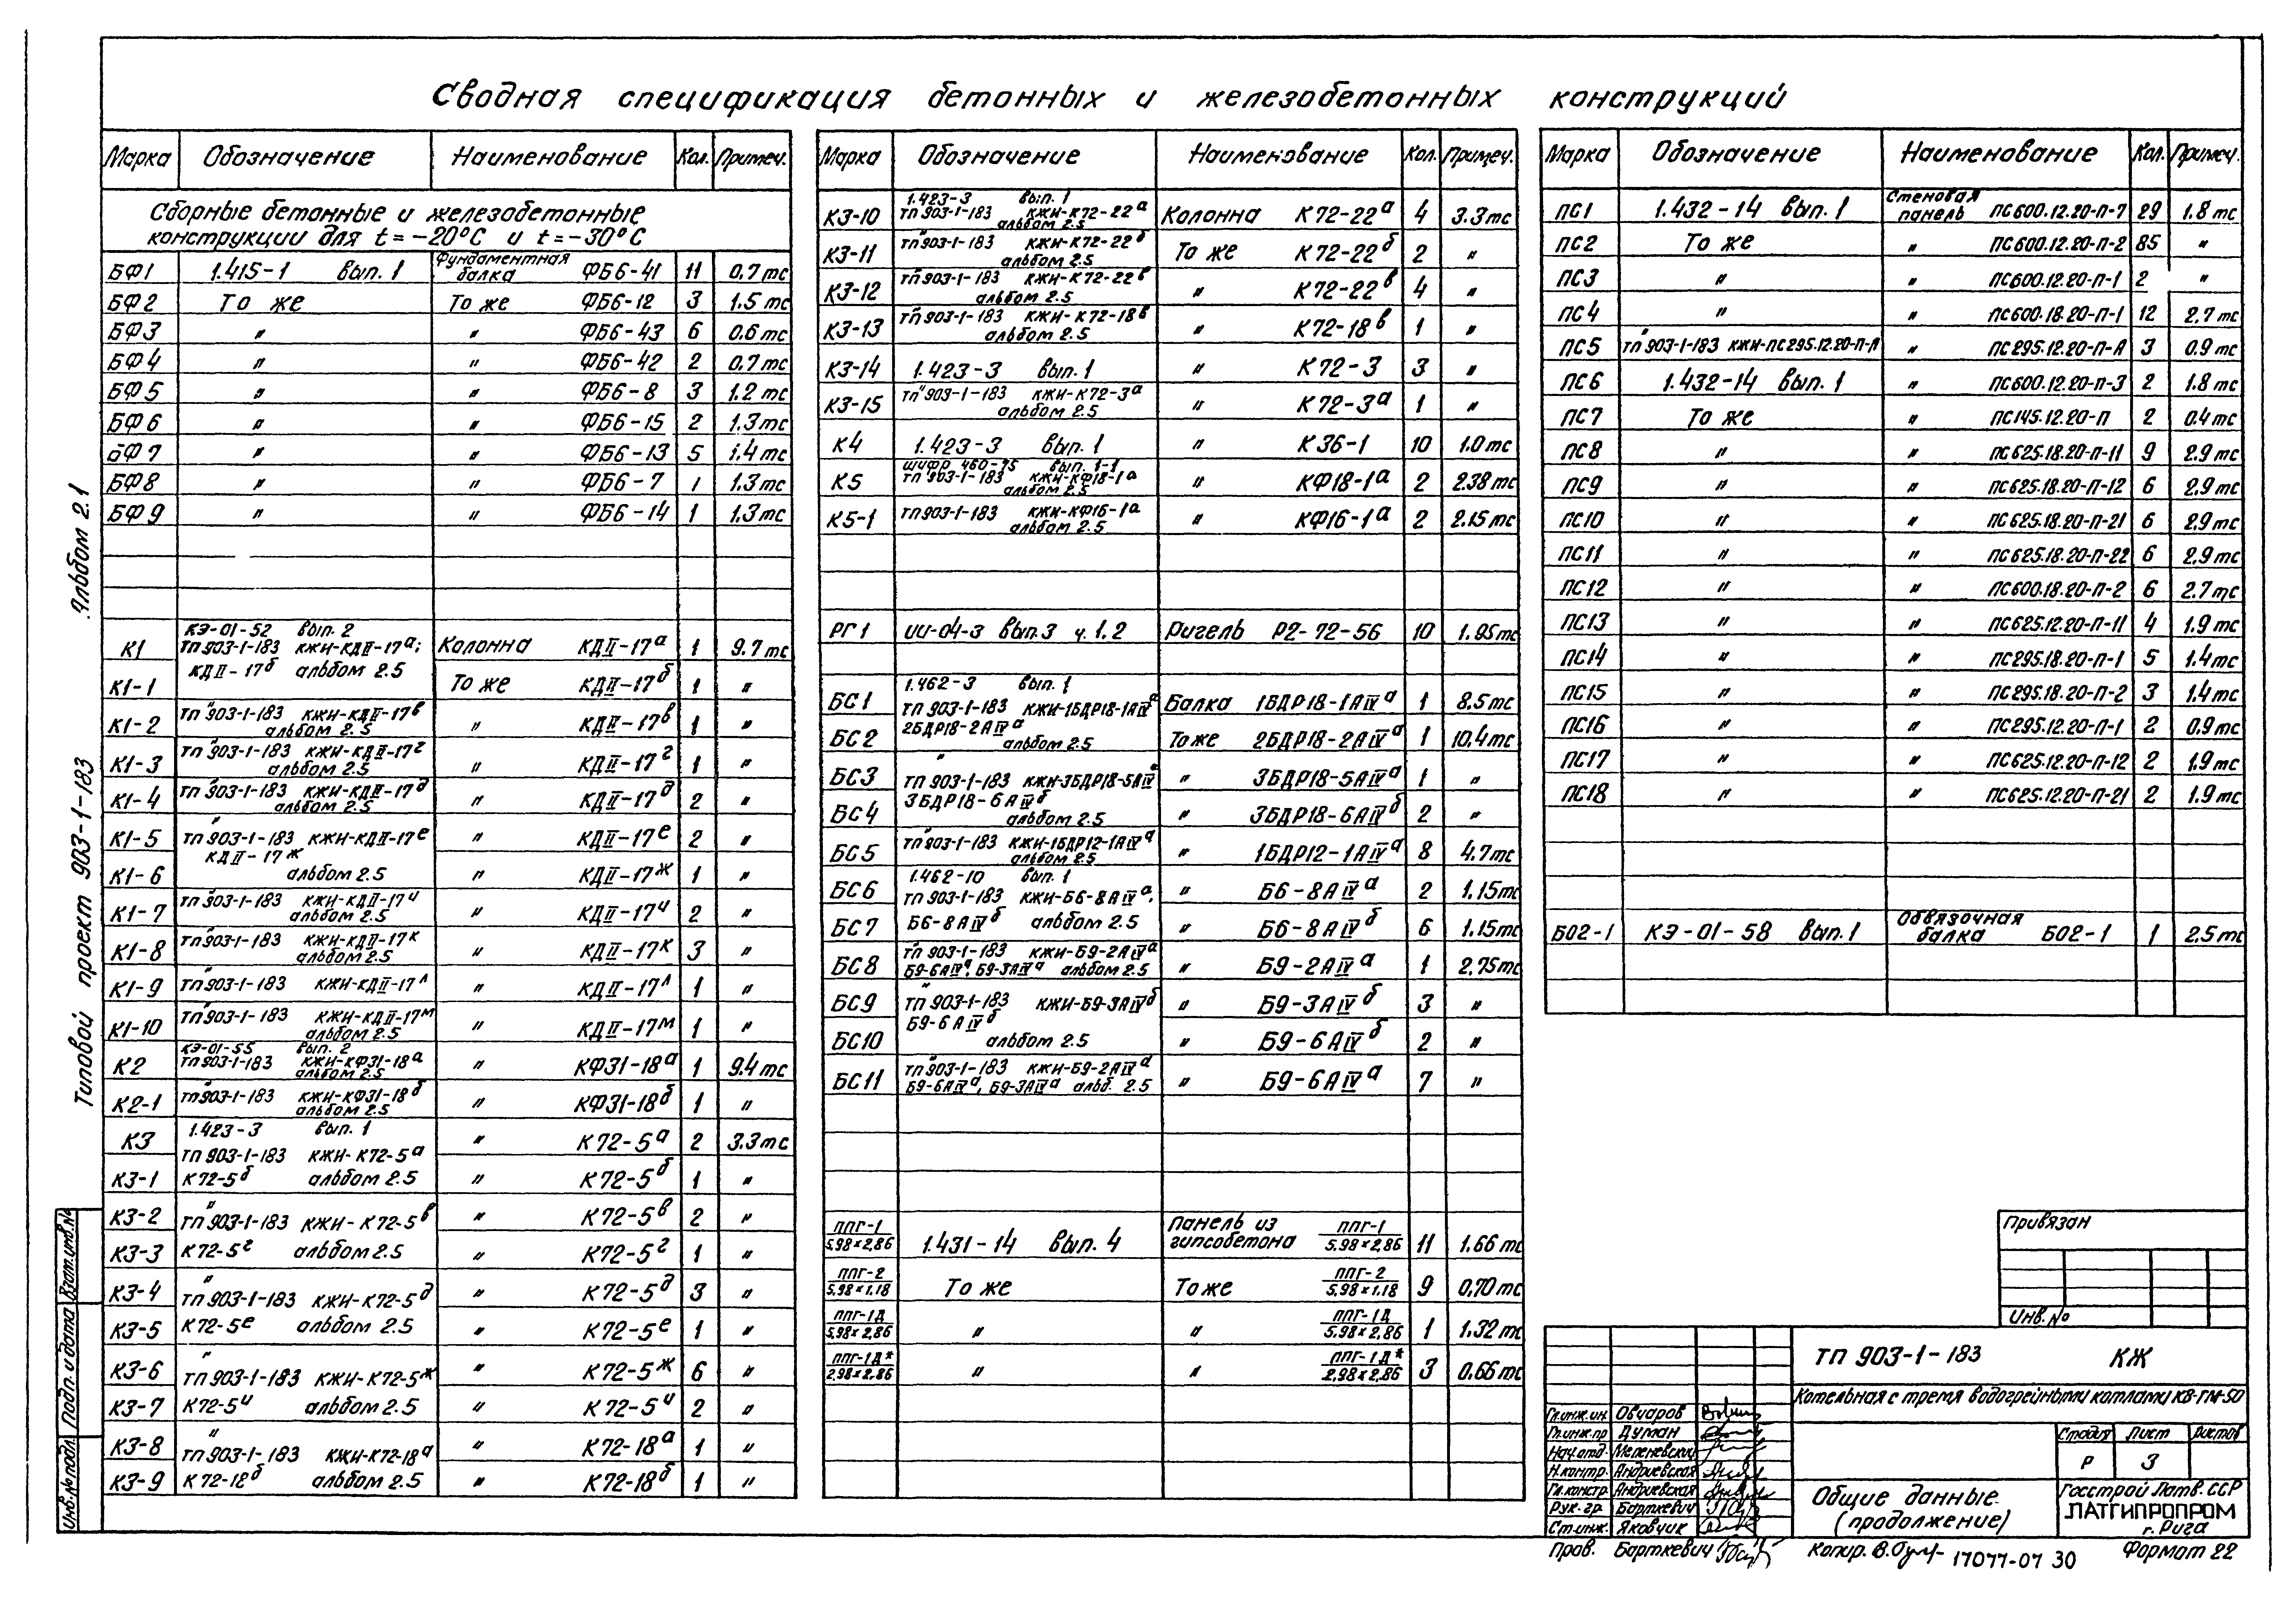 Сводная спецификация бетонных и железобетонных конструкций
Марка Обозначение Наименование Кол. Примеч.
Сборные бетонные и железобетонные
конструкции для t=-20°C и t=-30°C
БФ1 1.415-1 вып. 1 Фундаментная балка ФБ6-41 11 0,7тс
БФ2 То же То же ФБ6-12 3 1.5тс
БФ3 " " ФБ6-43 6 0.6тс
БФ4 " " ФБ6-42 2 0.7тс
БФ5 " " ФБ6-8 3 1.2тс
БФ6 " " ФБ6-15 2 1.3тс
БФ7 " " ФБ6-13 5 1.4тс
БФ8 " " ФБ6-7 1 1.3тс
БФ9 " " ФБ6-14 1 1.3тс
КЭ-01-52 вып. 2
К1 ТП 903-1-183 КЖИ-КДII-17а; Колонна КДII-17а 1 9.7тс
КДII-17б альбом 2.5
К1-1 То же КДII-17б 1 "
К1-2 ТП 903-1-183 КЖИ-КДII-17в альбом 2.5 " КДII-17в 1 "
К1-3 ТП 903-1-183 КЖИ-КДII-17г альбом 2.5 " КДII-17г 1 "
К1-4 ТП 903-1-183 КЖИ-КДII-17д альбом 2.5 " КДII-17д 2 "
К1-5 ТП 903-1-183 КЖИ-КДII-17е " КДII-17е 2 "
КДII-17ж
К1-6 альбом 2.5 " КДII-17ж 1 "
К1-7 ТП 903-1-183 КЖИ-КДII-17и альбом 2.5 " КДII-17и 2 "
К1-8 ТП 903-1-183 КЖИ-КДII-17к альбом 2.5 " КДII-17к 3 "
К1-9 ТП 903-1-183 КЖИ-КДII-17л " КДII-17л 1 "
К1-10 ТП 903-1-183 КЖИ-КДII-17м альбом 2.5 " КДII-17м 1 "
КЭ-01-55 вып. 2
К2 ТП 903-1-183 КЖИ-КФ31-18а альбом 2.5 " КФ31-18а 1 9.4тс
К2-1 ТП 903-1-183 КЖИ-КФ31-18б альбом 2.5 " КФ31-18б 1 "
К3 1.423-3 вып. 1 " К72-5а 2 3.3тс
ТП 903-1-183 КЖИ-К72-5а
К3-1 К72-5б альбом 2.5 " К72-5б 1 "
К3-2 ТП 903-1-183 КЖИ-К72-5в " К72-5в 2 "
К3-3 К72-5г альбом 2.5 " К72-5г 1 "
К3-4 ТП 903-1-183 КЖИ-К72-5д " К72-5д 3 "
К3-5 К72-5е альбом 2.5 " К72-5е 1 "
К3-6 ТП 903-1-183 КЖИ-К72-5ж " К72-5ж 6 "
К3-7 К72-5и альбом 2.5 " К72-5и 2 "
К3-8 ТП 903-1-183 КЖИ-К72-18а " К72-18а 1 "
К3-9 К72-18б альбом 2.5 " К72-18б 1 "
Марка Обозначение Наименование Кол. Примеч.
1.423-3 вып. 1
К3-10 ТП 903-1-183 КЖИ-К72-22а альбом 2.5 Колонна К72-22а 4 3.3тс
К3-11 ТП 903-1-183 КЖИ-К72-22б альбом 2.5 То же К72-22б 2 "
К3-12 ТП 903-1-183 КЖИ-К72-22в альбом 2.5 " К72-22в 4 "
К3-13 ТП 903-1-183 КЖИ-К72-18в альбом 2.5 " К72-18в 1 "
К3-14 1.423-3 вып. 1 " К72-3 3 "
К3-15 ТП 903-1-183 КЖИ-К72-3а альбом 2.5 " К72-3а 1 "
К4 1.423-3 вып. 1 " К36-1 10 1.0тс
шифр 460-75 вып. 1-1
К5 ТП 903-1-183 КЖИ-КФ18-1а альбом 2.5 " КФ18-1а 2 2.38тс
К5-1 ТП 903-1-183 КЖИ-КФ16-1а альбом 2.5 " КФ16-1а 2 2.15тс
РГ1 ИИ-04-3 вып.3 ч. 1.2 Ригель Р2-72-56 10 1.95тс
1.462-3 вып. 1
БС1 ТП 903-1-183 КЖИ-1БДР18-1АIVа Балка 1БДР18-1АIVа 1 8.5тс
2БДР18-2АIVа
БС2 альбом 2.5 То же 2БДР18-2АIVа 1 10.4тс
БС3 ТП 903-1-183 КЖИ-3БДР18-5АIVа " 3БДР18-5АIVа 1 "
3БДР18-6АIVб
БС4 альбом 2.5 " 3БДР18-6АIVб 2 "
БС5 ТП 903-1-183 КЖИ-1БДР12-1АIVа альбом 2.5 " 1БДР12-1АIVа 8 4.7тс
1.462-10 вып. 1
БС6 ТП 903-1-183 КЖИ-Б6-8АIVа, " Б6-8АIVа 2 1.15тс
БС7 Б6-8АIVб альбом 2.5 " Б6-8АIVб 6 1.15тс
БС8 ТП 903-1-183 КЖИ-Б9-2АIVа Б9-6АIVа, Б9-3АIVа альбом 2.5 " Б9-2АIVа 1 2.75тс
БС9 ТП 903-1-183 КЖИ-Б9-3АIVб " Б9-3АIVб 3 "
Б9-6АIVб
БС10 альбом 2.5 " Б9-6АIVб 2 "
БС11 ТП 903-1-183 КЖИ-Б9-2АIVа Б9-6АIVа, Б9-3АIVа альб. 2.5 " Б9-6АIVа 7 "
ППГ-1 5.98×2.86 1.431-14 вып. 4 Панель из гипсобетона ППГ-1 5.98×2.86 11 1.66тс
ППГ-2 5.98×1.18 То же То же ППГ-2 5.98×1.18 9 0,70тс
ППГ-1Д 5.98×2.86 " " ППГ-1Д 5.98×2.86 1 1.32тс
ППГ-1Д* 2.98×2.86 " " ППГ-1Д* 2.98×2.86 3 0.66тс
Марка Обозначение Наименование Кол. Примеч.
ПС1 1.432-14 вып. 1 Стеновая панель ПС600.12.20-П-7 29 1.8тс
ПС2 То же " ПС600.12.20-П-2 85 "
ПС3 " " ПС600.12.20-П-1 2 "
ПС4 " " ПС600.18.20-П-1 12 2.7тс
ПС5 ТП 903-1-183 КЖИ-ПС295.12.20-П-А " ПС295.12.20-П-А 3 0.9тс
ПС6 1.432-14 вып. 1 " ПС600.12.20-П-3 2 1.8тс
ПС7 То же " ПС145.12.20-П 2 0.4тс
ПС8 " " ПС625.18.20-П-11 9 2.9тс
ПС9 " " ПС625.18.20-П-12 6 2,9тс
ПС10 " " ПС625.18.20-П-21 6 2.9тс
ПС11 " " ПС625.18.20-П-22 6 2.9тс
ПС12 " " ПС600.18.20-П-2 6 2.7тс
ПС13 " " ПС625.12.20-П-11 4 1.9тс
ПС14 " " ПС295.18.20-П-1 5 1.4тс
ПС15 " " ПС295.18.20-П-2 3 1.4тс
ПС16 " " ПС295.12.20-П-1 2 0.9тс
ПС17 " " ПС625.12.20-П-12 2 1.9тс
ПС18 " " ПС625.12.20-П-21 2 1.9тс
БО2-1 КЭ-01-58 вып.1 Обвязочная балка БО2-1 1 2.5тс
Альбом 2.1
Типовой проект 903-1-183
Взам.инв.№
Подп. и дата
Инв.№ подл.
Привязан
Инв.№
ТП 903-1-183 КЖ
Котельная с тремя водогрейными котлами КВ-ГМ-50
Стадия Лист Листов
Р 3
Гл.инж.ин. Овчаров
Гл.инж.пр Думан
Нач.отд. Меленевский
Н.контр. Андриевская
Гл.констр. Андриевская
Рук.гр. Барткевич
Ст.инж. Яковчик
Пров. Барткевич
Общие данные.
(продолжение)
Госстрой Латв.ССР
ЛАТГИПРОПРОМ
г.Рига
Копир. 17077-07 30 Формат 22